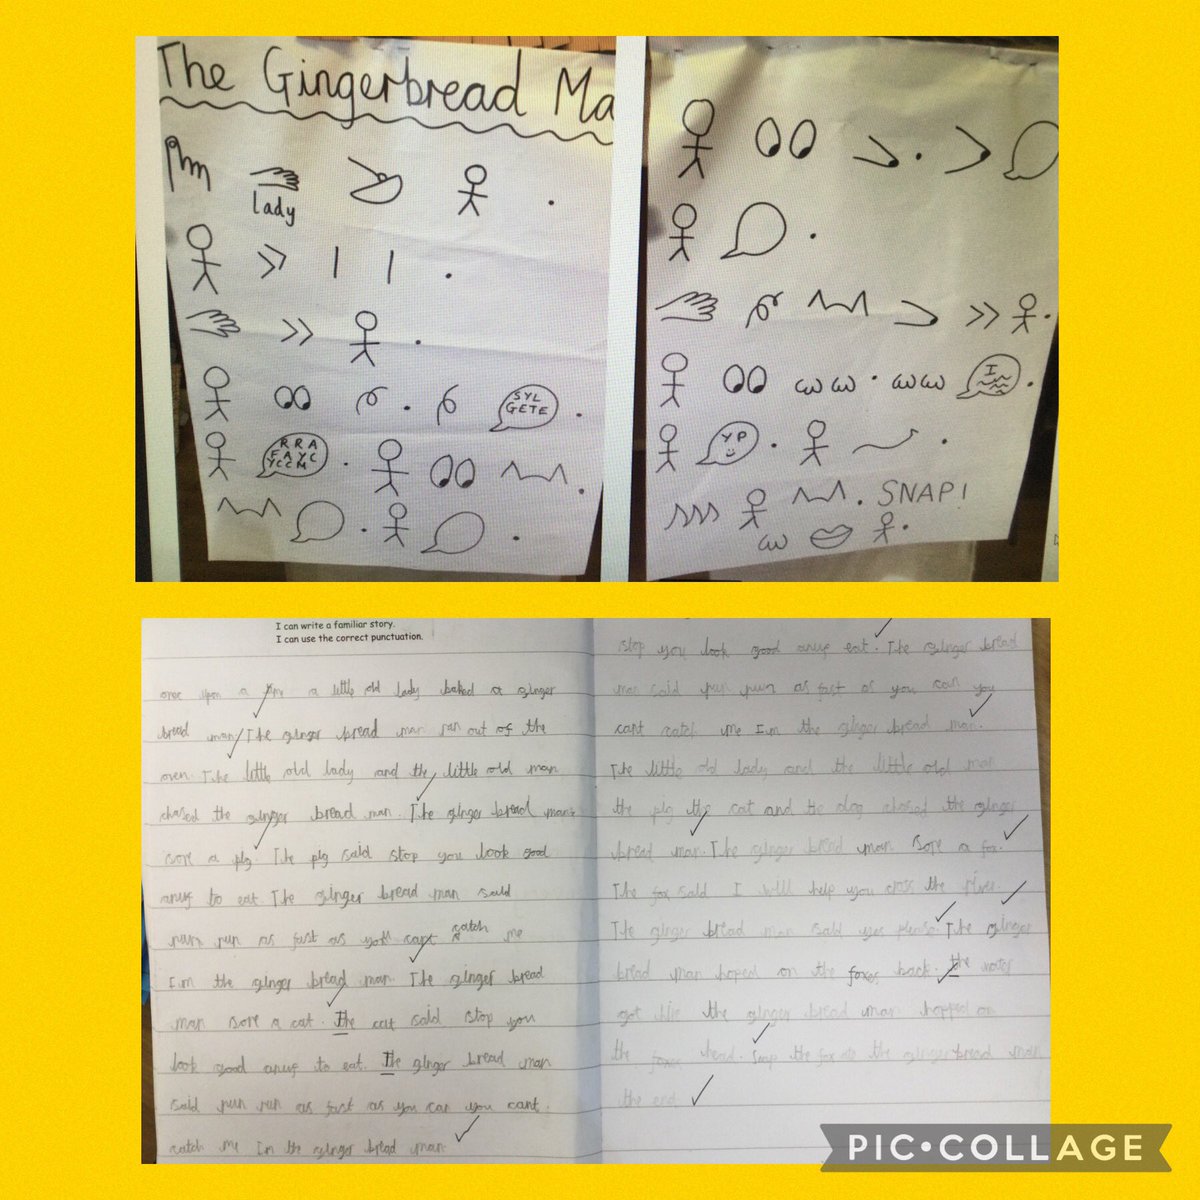 The Gingerbread Ma
lady
SYL
GETE
RRA
FAYC
YCCM
I
YP
SNAP!
I can write a familiar story.
I can use the correct punctuation.
once upon a time a little old lady baked a ginger
bread man. The ginger bread man ran out of the
oven. The little old lady and the little old man
chased the ginger bread man. The ginger bread man
sore a pig. The pig said stop you look good
anuf to eat The ginger bread man said
run run as fast as you cant catch me
I'm the ginger bread man. The ginger bread
man sore a cat. The cat said stop you
look good anuf to eat. The ginger bread man
said run run as fast as you can you cant.
catch me Im the ginger bread man.
stop you look good anuf eat. The ginger bread
man said run run as fast as you can you
cant catch me I'm the ginger bread man.
The little old lady and the little old man
the pig the cat and the dog chased the ginger
bread man. The ginger bread man sore a fox.
The fox said I will help you cross the river.
The ginger bread man said yes please. The ginger
bread man hoped on the foxes back. the water
got the ginger bread man hopped on
the foxes head. Snap the fox the gingerbread man
the end
PIC•COLLAGE